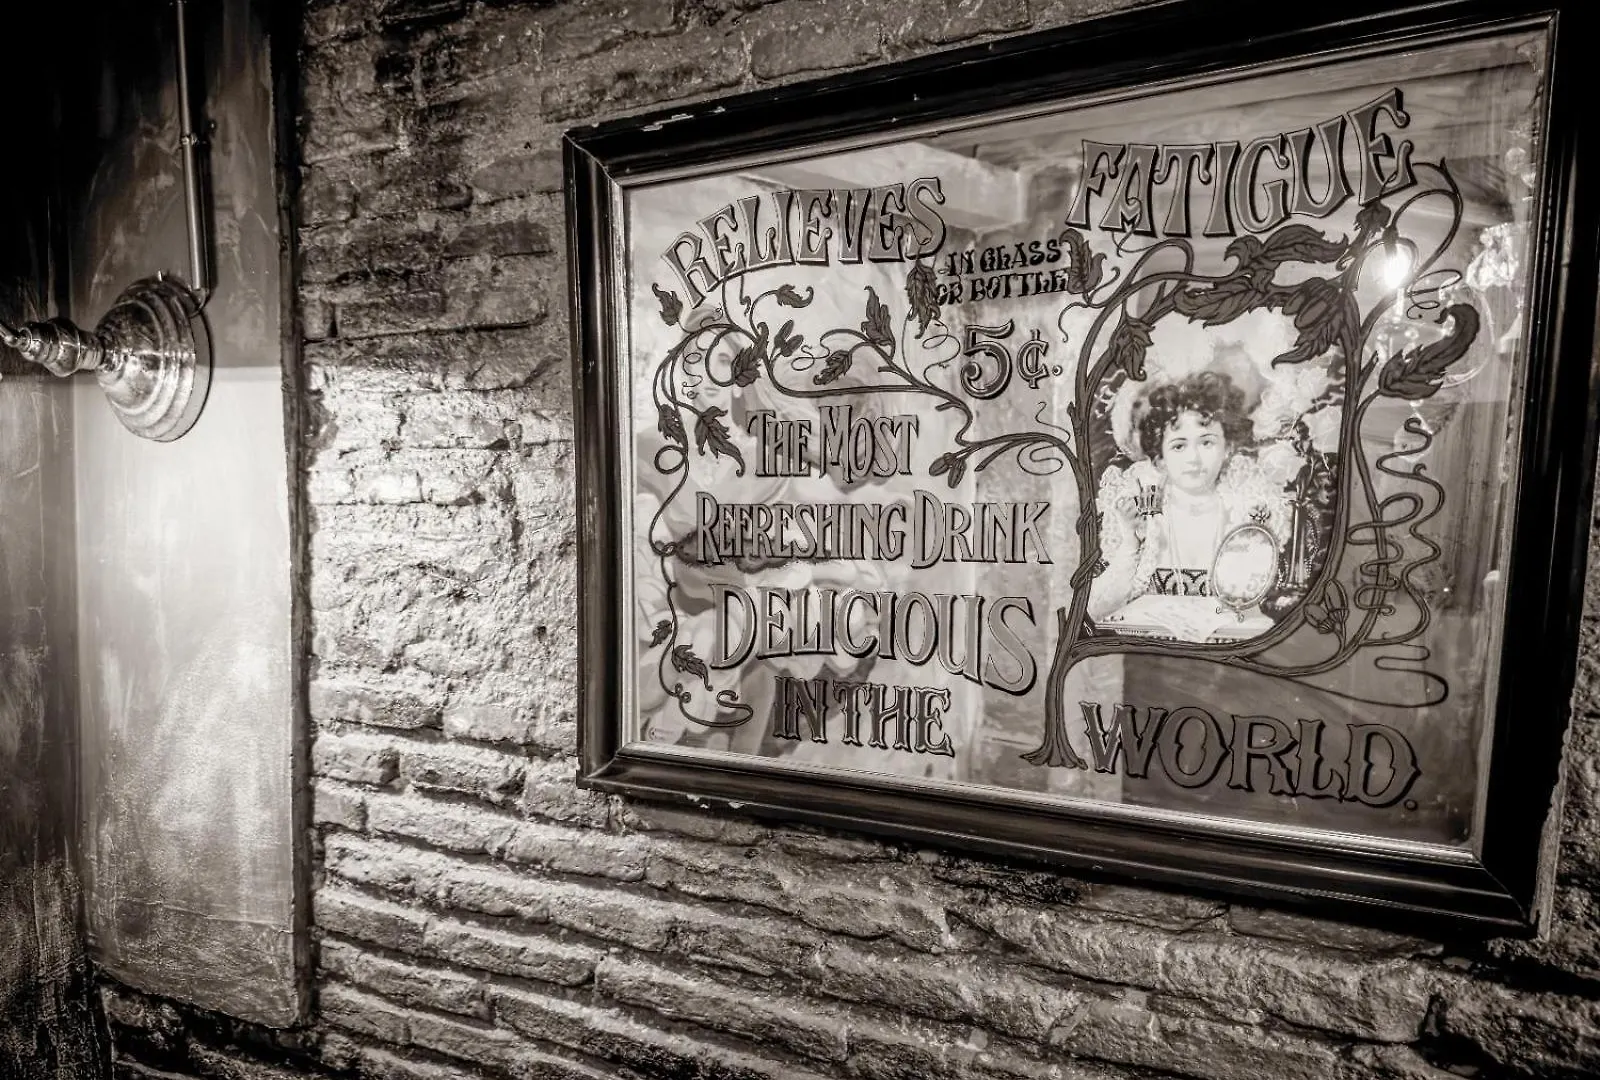 RELIEVES FATIGUE
IN GLASS
OR BOTTLE
5¢.
THE MOST
REFRESHING DRINK
DELICIOUS
IN THE WORLD.